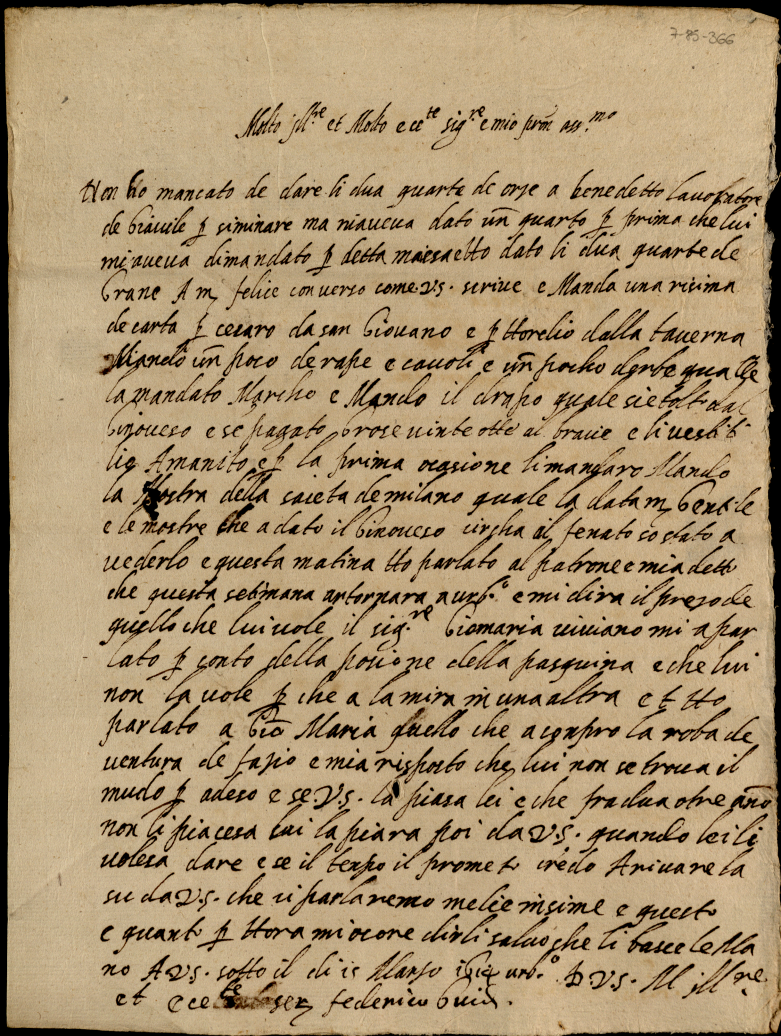 7-85-366
Molto Ill.re et Molto ecc.te sig.re e mio pron oss.mo
Non ho mancato de dare li dua quarte de orze a benedetto lavoratore
de Giavile p siminare ma niaveva dato un quarto p prima che lui
mi aveva dimandato p detta dato li dua quarte de
Grane A m felice converso come V.S. scrive e Mando una risima
de carta p cesaro da san Giovano e p Horelio dalla taverna
Mando un poco de rape e cavoli e un pocho derbe qualle
la mandato Marcho e Mando il drapo quale sie tolto dal
Ginoveso e se pagato Grose vinte otto al bracie e li vestiti
lio Amanito e p la prima ocasione li mandaro Mando
la Mostra della saieta de milano quale la data m Gentile
e le mostre che a dato il Ginoveso circha il fenato so stato a
vederlo e questa matina Ho parlato al patrone e mia detto
che questa setimana artornara a urb.o e mi dira il prezo de
quello che lui vole il sig.re Giomaria viviano mi a par
lato p conto della posione della pasquina e che lui
non la vole p che a la mira in una altra e et Ho
parlato a Gio Maria quello che a conpro la roba de
ventura de fazio e mia risposto che lui non se trova il
mudo p adeso e se V.S. la piasa lei e che fra dua o tre anno
non li piacesa lui la piara poi da V.S. quando lei li
volesa dare e se il tempo il promet credo Arivare la
su da V.S. che ci parlaremo melie insime e questo
e quanto p Hora mi ocore dirli salvo che li basce le Ma
no A V.S. sotto il di Marzo urb.o D.V.S. M Ill.re
et Ecce.te ser federico Guid